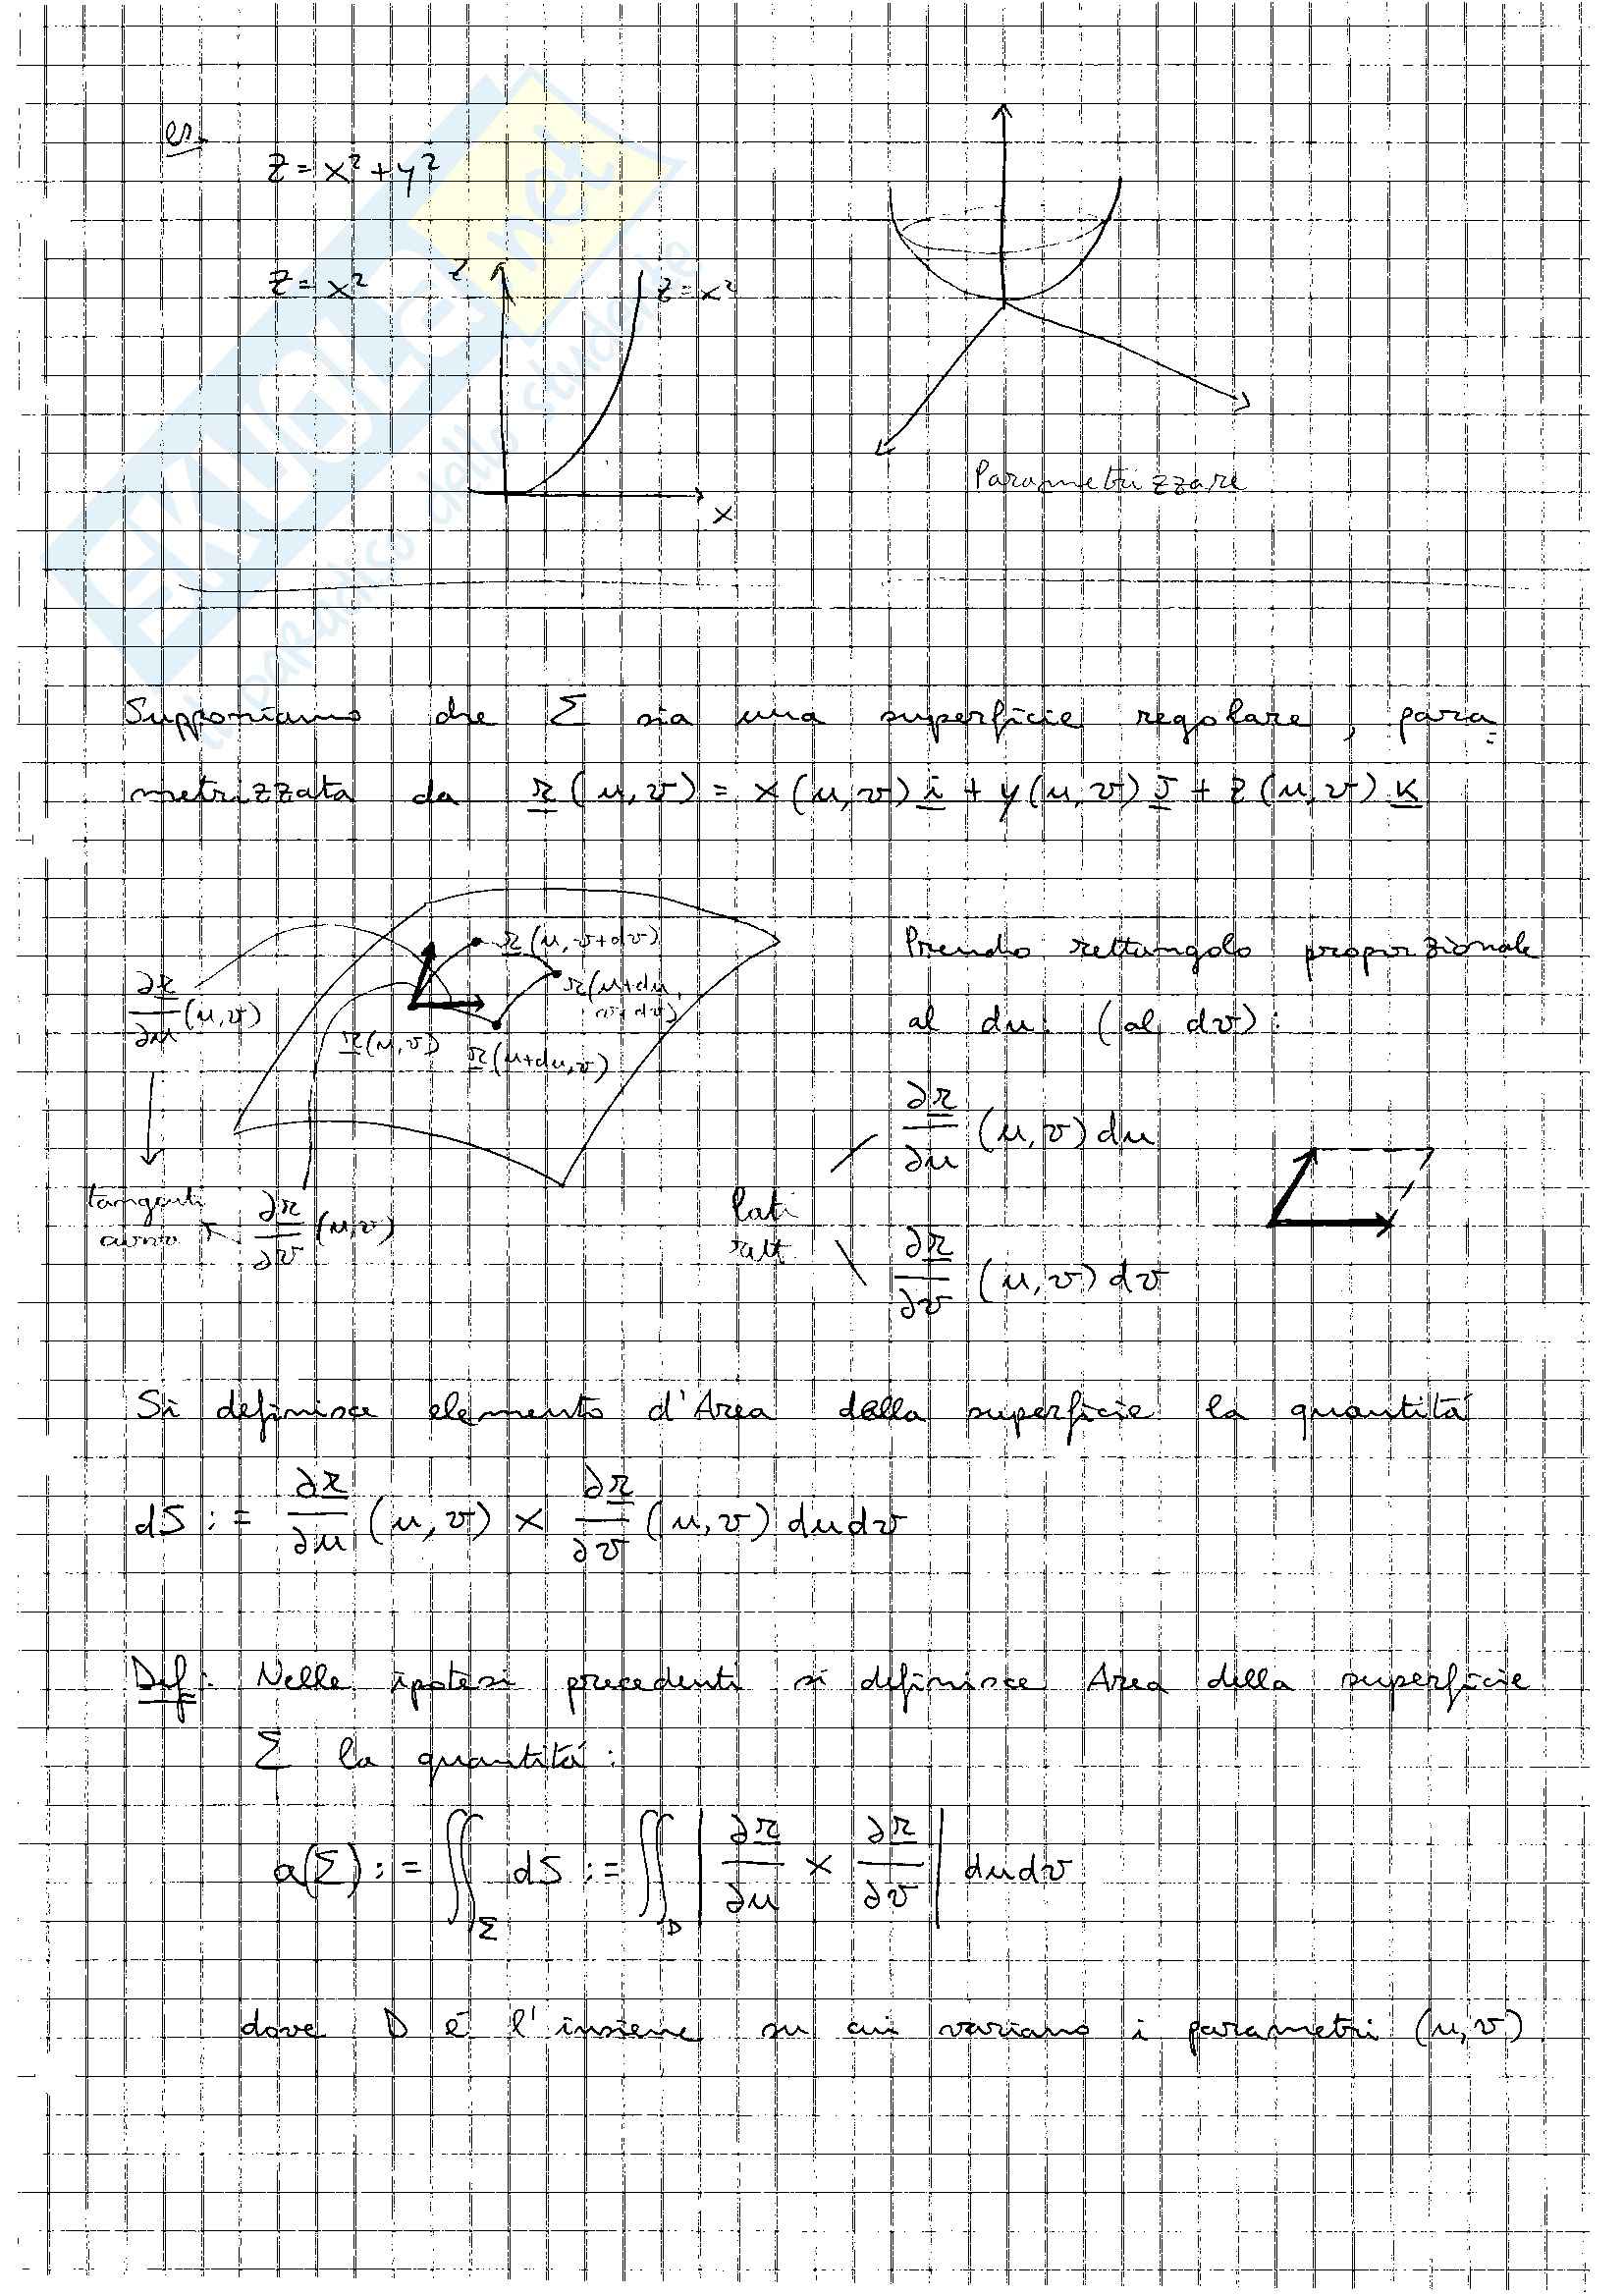 es.
z = x² + y²
z = x²
z
z = x²
x
Parametrizzare
Supponiamo che Σ sia una superficie regolare, para=
metrizzata da r(u,v) = x(u,v) i + y(u,v) j + z(u,v) k
r(u,v+dv)
r(u+du,
v+dv)
∂r/∂u (u,v)
r(u,v)
r(u+du,v)
tangenti
∂r/∂v (u,v)
Prendo rettangolo proporzionale
al du (al dv):
∂r/∂u (u,v) du
lati
rett.
∂r/∂v (u,v) dv
Si definisce elemento d'Area della superficie la quantità
dS := ∂r/∂u (u,v) × ∂r/∂v (u,v) du dv
Def: Nelle ipotesi precedenti si definisce Area della superficie
Σ la quantità:
a(Σ) := ∬_Σ dS := ∬_D | ∂r/∂u × ∂r/∂v | du dv
dove D è l'insieme su cui variano i parametri (u,v)